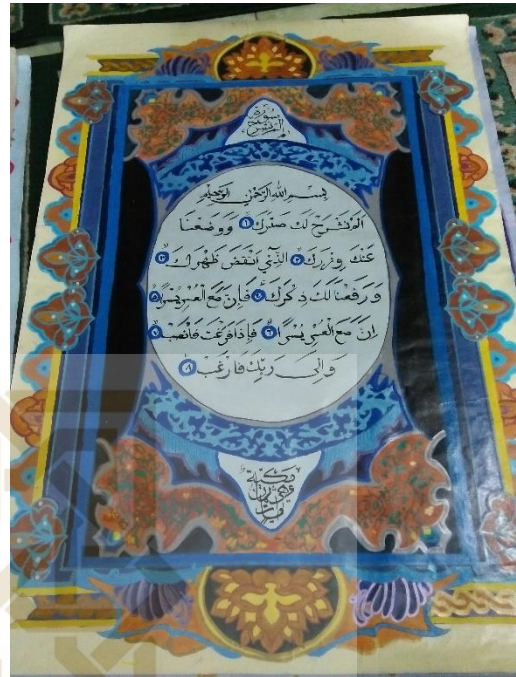 سورة
الم نشرح
بسم الله الرحمن الرحيم
الم نشرح لك صدرك ١ ووضعنا
عنك وزرك ٢ الذي انقض ظهرك ٣
ورفعنا لك ذكرك ٤ فإن مع العسر يسرا ٥
إن مع العسر يسرا ٦ فإذا فرغت فانصب ٧
وإلى ربك فارغب ٨
مكية